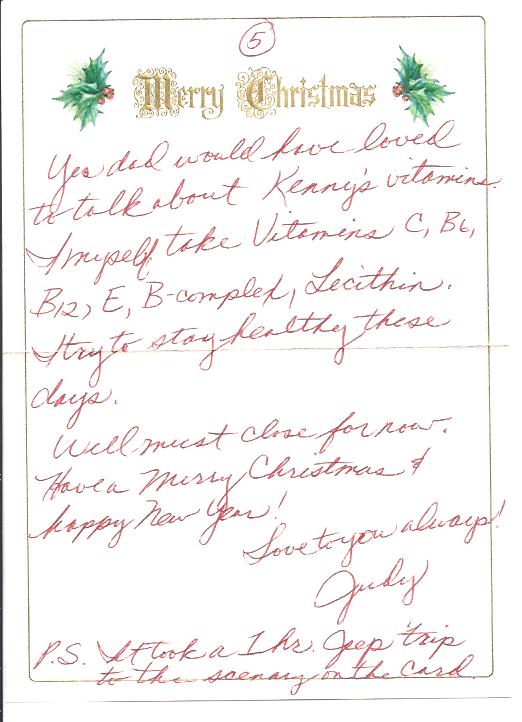 5
Merry Christmas
Yes dad would have loved
to talk about Kenny's vitamins.
I myself, take Vitamins C, B6,
B12, E, B-complex, Lecithin.
I try to stay healthy these
days.
Well must close for now.
Have a Merry Christmas &
happy New Year!
Love to you always!
Judy
P.S. It took a 1 hr. Jeep trip
to the scenary on the Card.